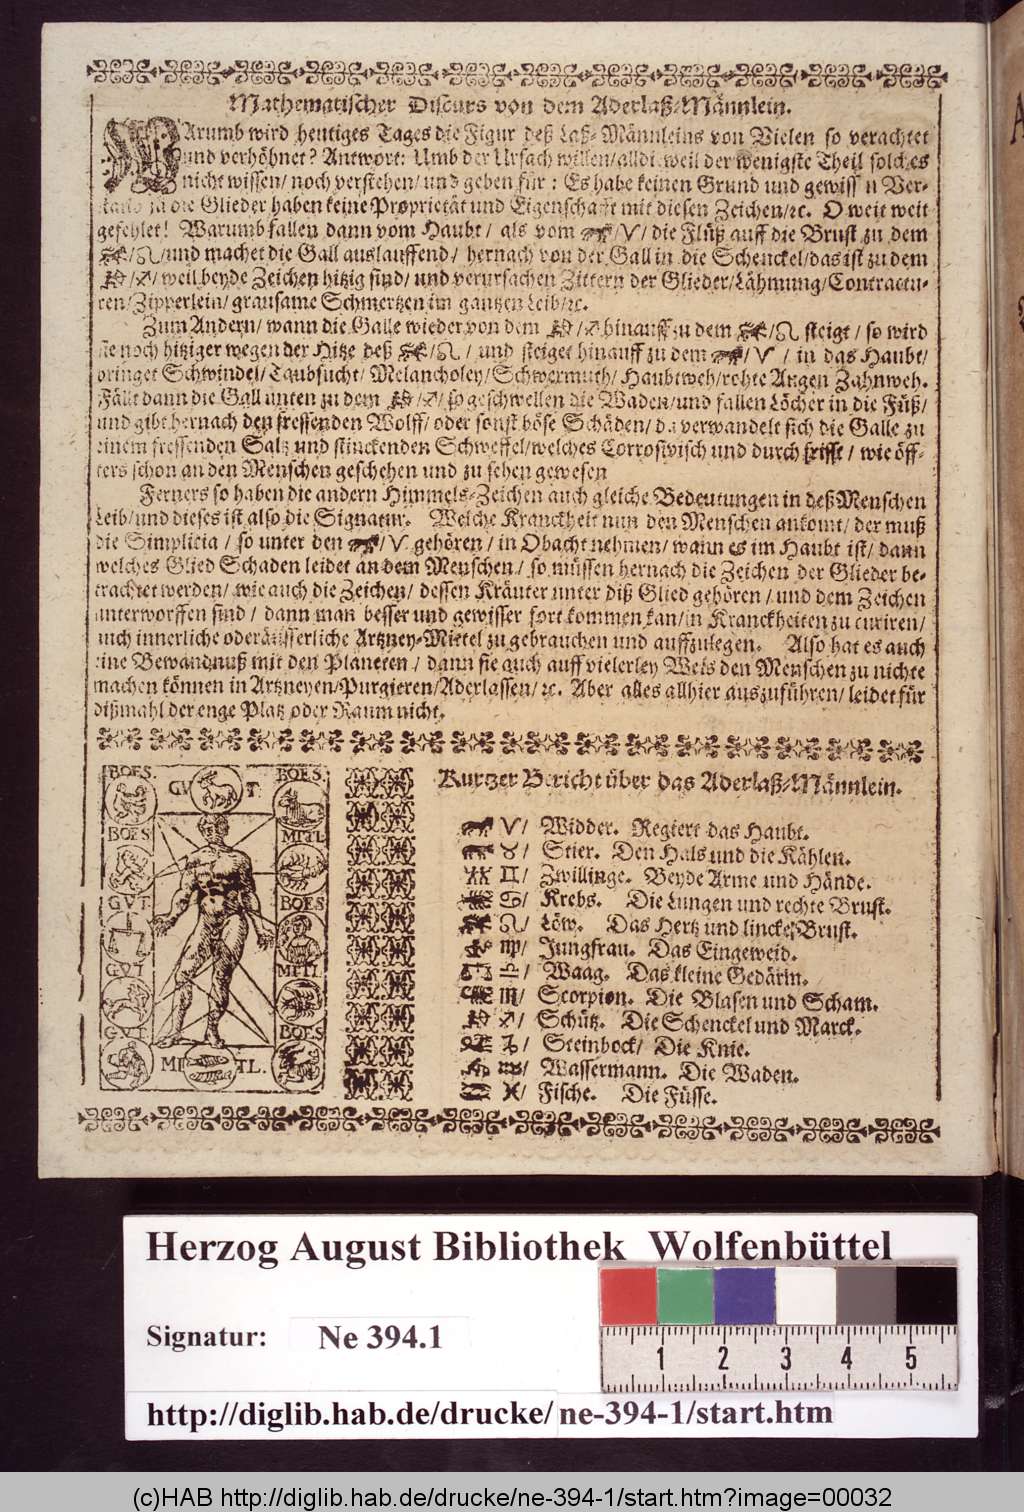 Mathematischer Discurs von dem Aderlaß-Männlein.
Warumb wird heutiges Tages die Figur deß Laß-Männleins von Vielen so verachtet
und verhöhnet? Antwort: Umb der Ursach willen/ alldieweil der wenigste Theil solches
nicht wissen/ noch verstehen/ und geben für: Es habe keinen Grund und gewissen Ver-
die Glieder haben keine Proprietät und Eigenschafft mit diesen Zeichen/ ꝛc. O weit weit
gefehlet! Warumb fallen dann vom Haubt/ als vom ♈/ die Flüß auff die Brust zu dem
♌/ und machet die Gall auslauffend/ hernach von der Gall in die Schenckel/ das ist zu dem
♐/ weil beyde Zeichen hitzig sind/ und verursachen Zittern der Glieder/ Lähmung/ Contractu-
ren/ Zipperlein/ grausame Schmertzen im gantzen Leib/ ꝛc.
Zum Andern/ wann die Galle wieder von dem ♐ hinauff zu dem ♌ steigt/ so wird
sie noch hitziger wegen der Hitze deß ♌/ und steiget hinauff zu dem ♈/ in das Haubt/
bringet Schwindel/ Taubsucht/ Melancholey/ Schwermuth/ Haubtweh/ rohte Augen Zahnweh.
Fällt dann die Gall unten zu dem ♐/ so geschwellen die Waden/ und fallen Löcher in die Füß/
und gibt hernach den fressenden Wolff/ oder sonst böse Schäden/ da verwandelt sich die Galle zu
einem fressenden Saltz und stinckenden Schweffel/ welches Corrosivisch und durch frisst/ wie öff-
ters schon an den Menschen geschehen und zu sehen gewesen
Ferners so haben die andern Himmels-Zeichen auch gleiche Bedeutungen in deß Menschen
Leib/ und dieses ist also die Signatur. Welche Kranckheit nun den Menschen ankomt/ der muß
die Simplicia/ so unter den ♈ gehören/ in Obacht nehmen/ wann es im Haubt ist/ dann
welches Glied Schaden leidet an dem Menschen/ so müssen hernach die Zeichen der Glieder be-
trachtet werden/ wie auch die Zeichen/ dessen Kräuter unter diß Glied gehören/ und dem Zeichen
unterworffen sind/ dann man besser und gewisser fort kommen kan/ in Kranckheiten zu curiren/
auch innerliche oder äusserliche Artzney-Mittel zu gebrauchen und auffzulegen. Also hat es auch
eine Bewandnuß mit den Planeten/ dann sie auch auff vielerley Weis den Menschen zu nichte
machen können in Artzneyen/ Purgieren/ Aderlassen/ ꝛc. Aber alles allhier auszuführen/ leidet für
dißmahl der enge Platz oder Raum nicht.
BOES. GUT. BOES.
BOES MITL
GVT. BOES
GVT MITL
GVT. BOES
MITL.
Kurtzer Bericht über das Aderlaß-Männlein.
♈/ Widder. Regiert das Haubt.
♉/ Stier. Den Hals und die Kählen.
♊/ Zwillinge. Beyde Arme und Hände.
♋/ Krebs. Die Lungen und rechte Brust.
♌/ Löw. Das Hertz und lincke Brust.
♍/ Jungfrau. Das Eingeweid.
♎/ Waag. Das kleine Gedärm.
♏/ Scorpion. Die Blasen und Scham.
♐/ Schütz. Die Schenckel und Marck.
♑/ Steinbock/ Die Knie.
♒/ Wassermann. Die Waden.
♓/ Fische. Die Füsse.
Herzog August Bibliothek Wolfenbüttel
Signatur: Ne 394.1
1 2 3 4 5
http://diglib.hab.de/drucke/ne-394-1/start.htm
(c)HAB http://diglib.hab.de/drucke/ne-394-1/start.htm?image=00032